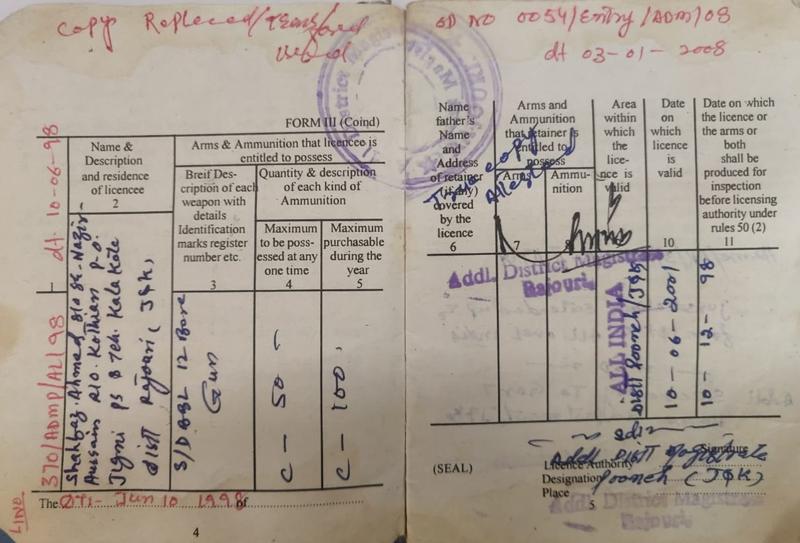 copy Replaced/
used
FORM III (Coind)
LINO
370/ADMP/AL/98 - dt. 10-06-98
Name &
Description
and residence
of licencee
2
Arms & Ammunition that licencee is
entitled to possess
Breif Des-
cription of each
weapon with
details
Identification
marks register
number etc.
3
Quantity & description
of each kind of
Ammunition
Maximum
to be poss-
essed at any
one time
4
Maximum
purchasable
during the
year
5
Shahbaz Ahmed S/o Sh. Nazir
Hussain R/o Kothian P.O.
PS & Teh. Kala Kote
distt Rajouri (J&K)
S/DBBL 12 Bore
Gun
C - 50
C - 100
The Dt- Jun 10 1998 of
4
GD NO 0054/Entry/ADM/08
dt 03-01-2008
Name
father's
Name
and
Address
of retainer
(if any)
covered
by the
licence
6
Arms and
Ammunition
that retainer is
entitled to
possess
Arms
7
Ammu-
nition
8
Area
within
which
the
lice-
nce is
valid
Date
on
which
licence
is
valid
10
Date on which
the licence or
the arms or
both
shall be
produced for
inspection
before licensing
authority under
rules 50 (2)
11
True copy
Attested
Addl. District Magistrate
Rajouri
ALL INDIA
Distt Poonch/J&K
10-06-2001
10-12-98
sd/-
Addl Distt Magistrate
Poonch (J&K)
(SEAL)
Signature
Licence Authority
Designation
Place
5
Addl. District Magistrate
Rajouri